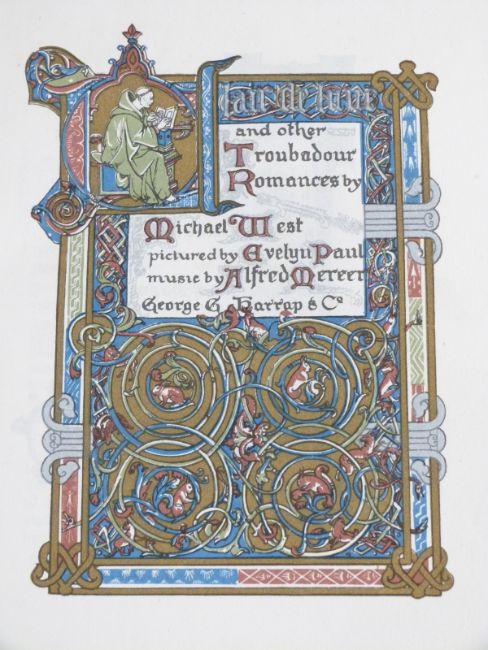 Clair de lune
and other
Troubadour
Romances by
Michael West
pictured by Evelyn Paul
music by Alfred Mercer
George G. Harrap & Co